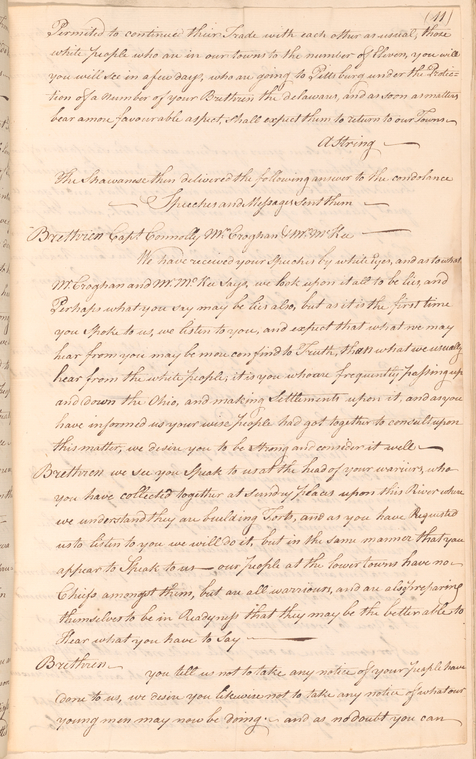 (11)
Permited to continue their Trade with each other as usual, those
white people who are in our towns to the number of Eleven, you will
you will see in a few days, who are going to Pittsburg under the Protec=
tion of a number of your Brethren the delawars, and as soon as matters
bear a more favourable aspect, shall expect them to return to our Towns
A String
The Shawanese then delivered the following answer to the condolance
Speeches and Messages Sent them
Brethren Capt. Connolly Mr. Croghan & Mr. McKee
We have received your Speeches by white Eyes, and as to what
Mr. Croghan and Mr. McKee Says, we look upon it all to be lies, and
Perhaps what you say may be lies also, but as it is the first time
you Spoke to us, we listen to you, and expect that what we may
hear from you may be more confined to Truth, than what we usually
hear from the white people; it is you who are frequently passing up
and down the Ohio, and making Settlements upon it, and as you
have informed us your wise people had got together to consult upon
this matter, we desire you to be Strong and consider it well
Brethren we see you Speak to us at the head of your warriers, who
you have collected together at Sundry places upon this River where
we understand they are building Forts, and as you have Requested
us to listen to you we will do it, but in the same manner that you
appear to Speak to us — our people at the lower towns have no
Chiefs amongst them, but are all warriours, and are also preparing
themselves to be in Readyness that they may be the better able to
Hear what you have to Say
Brethren you tell us not to take any notice of your people have
done to us, we desire you likewise not to take any notice of what our
young men may now be doing. and as no doubt you can